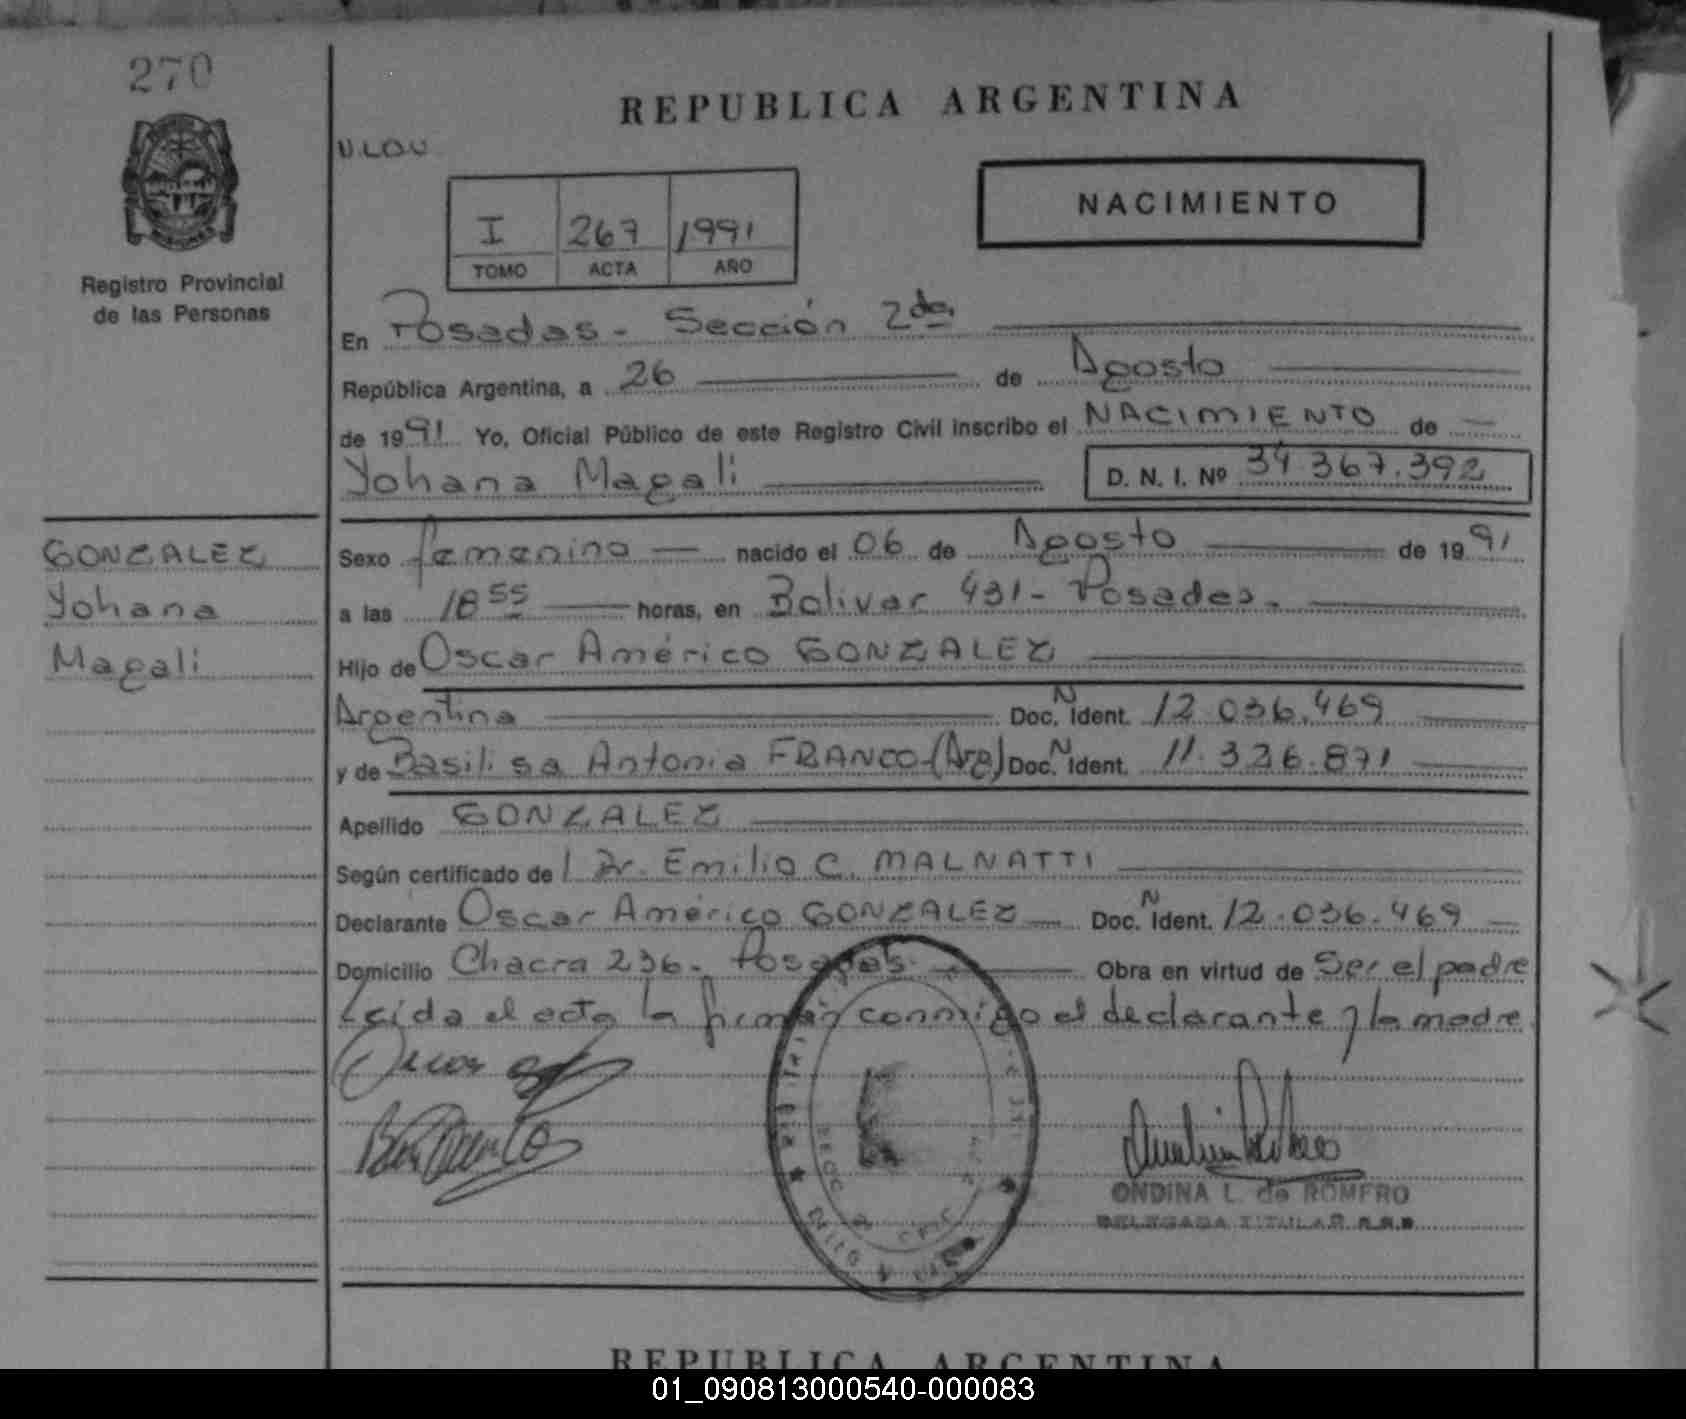 270
REPUBLICA ARGENTINA
Registro Provincial
de las Personas
I 267 1991
TOMO ACTA AÑO
NACIMIENTO
En Posadas - Sección 2da
República Argentina, a 26 de Agosto
de 1991 Yo, Oficial Público de este Registro Civil inscribo el NACIMIENTO de
Yohana Magali D. N. I. Nº 34.367.392
GONZALEZ
Yohana
Magali
Sexo femenino nacido el 06 de Agosto de 1991
a las 18 55 horas, en Bolivar 431 - Posadas.
Hijo de Oscar Américo GONZALEZ
Argentina Doc. N Ident. 12.036.469
y de Basilisa Antonia FRANCO (Arg) Doc. N Ident. 11.326.871
Apellido GONZALEZ
Según certificado de Dr. Emilio C. MALNATTI
Declarante Oscar Américo GONZALEZ Doc. N Ident. 12.036.469
Domicilio Chacra 236. Posadas Obra en virtud de Ser el padre
Leida el acta la firman conmigo el declarante y la madre
ONDINA L. de ROMERO
DELEGADA TITULAR
REPUBLICA ARGENTINA
01_090813000540-000083